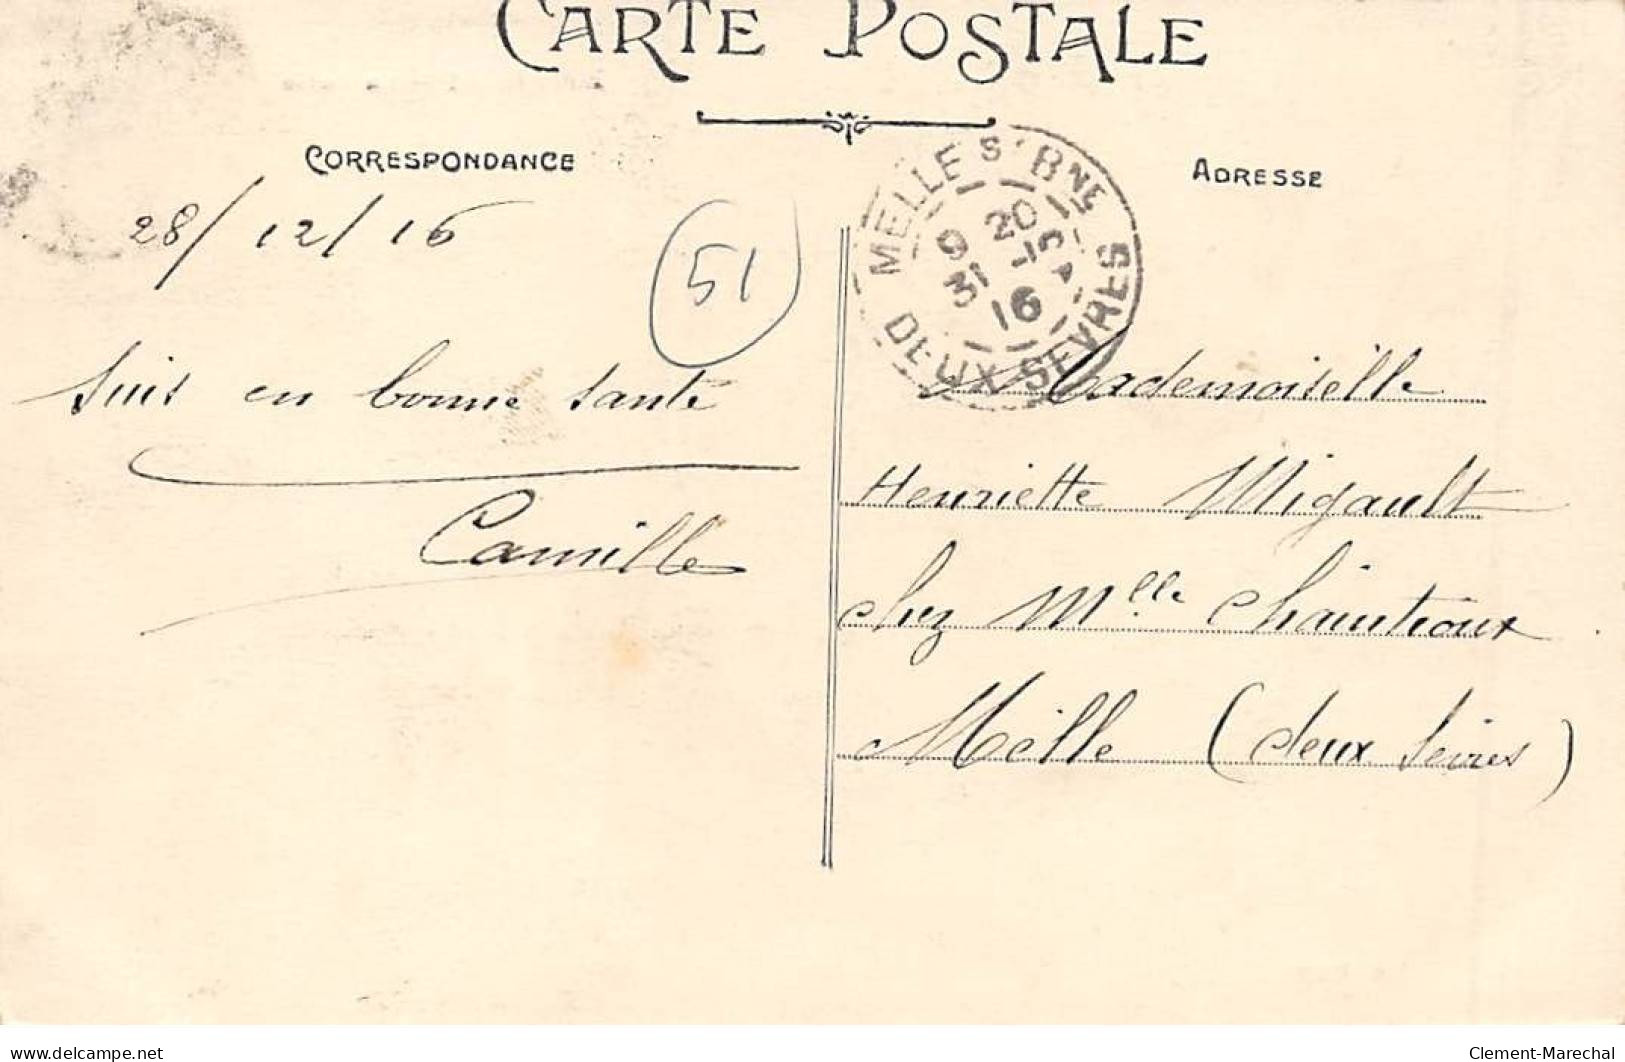 CARTE POSTALE
CORRESPONDANCE
ADRESSE
28/12/16
51
MELLE St Bne
20
31
16
DEUX-SEVRES
Suis en bonne santé
Camille
Mademoiselle
Henriette Migault
chez Mlle Chaintroux
Melle (deux Sèvres)
delcampe.net
Clement-Marechal